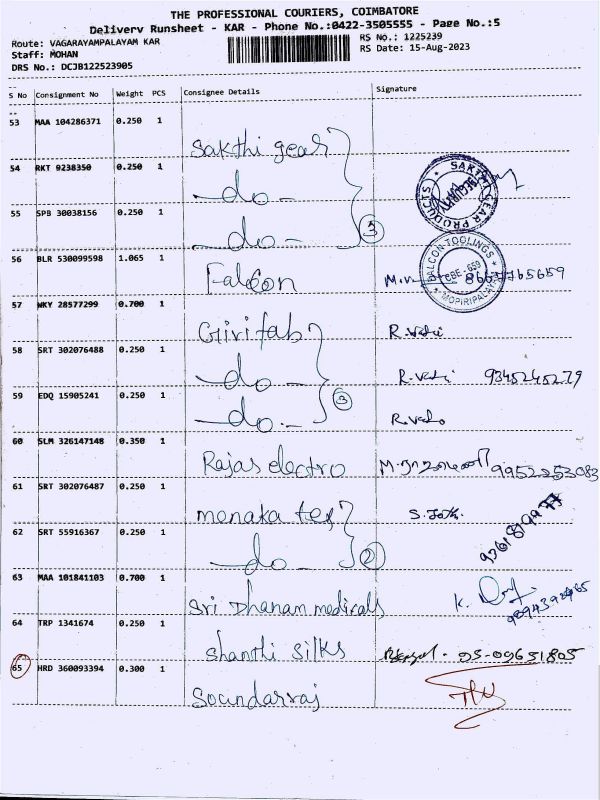 THE PROFESSIONAL COURIERS, COIMBATORE
Delivery Runsheet - KAR - Phone No.:0422-3505555 - Page No.:5
Route: VAGARAYAMPALAYAM KAR
RS No.: 1225239
Staff: MOHAN
RS Date: 15-Aug-2023
DRS No.: DCJB122523905
S No Consignment No Weight PCS Consignee Details Signature
53 MAA 104286371 0.250 1
Sakthi gear
54 RKT 9238350 0.250 1
do
SAKTHI GEAR PRODUCTS
55 SPB 30038156 0.250 1
do
3
56 BLR 530099598 1.065 1
Falcon
FALCON TOOLINGS
CBE-659
MOPIRIPALAYAM
57 MKY 28577299 0.700 1
Giri fab
58 SRT 302076488 0.250 1
do
9345245279
59 EDQ 15905241 0.250 1
do
3
60 SLM 326147148 0.350 1
Rajas electro
9952253083
61 SRT 302076487 0.250 1
menaka tex
62 SRT 55916367 0.250 1
do
2
63 MAA 101841103 0.700 1
Sri Dhanam medicals
64 TRP 1341674 0.250 1
Shanthi Silks
65 HRD 360093394 0.300 1
Soundarraj